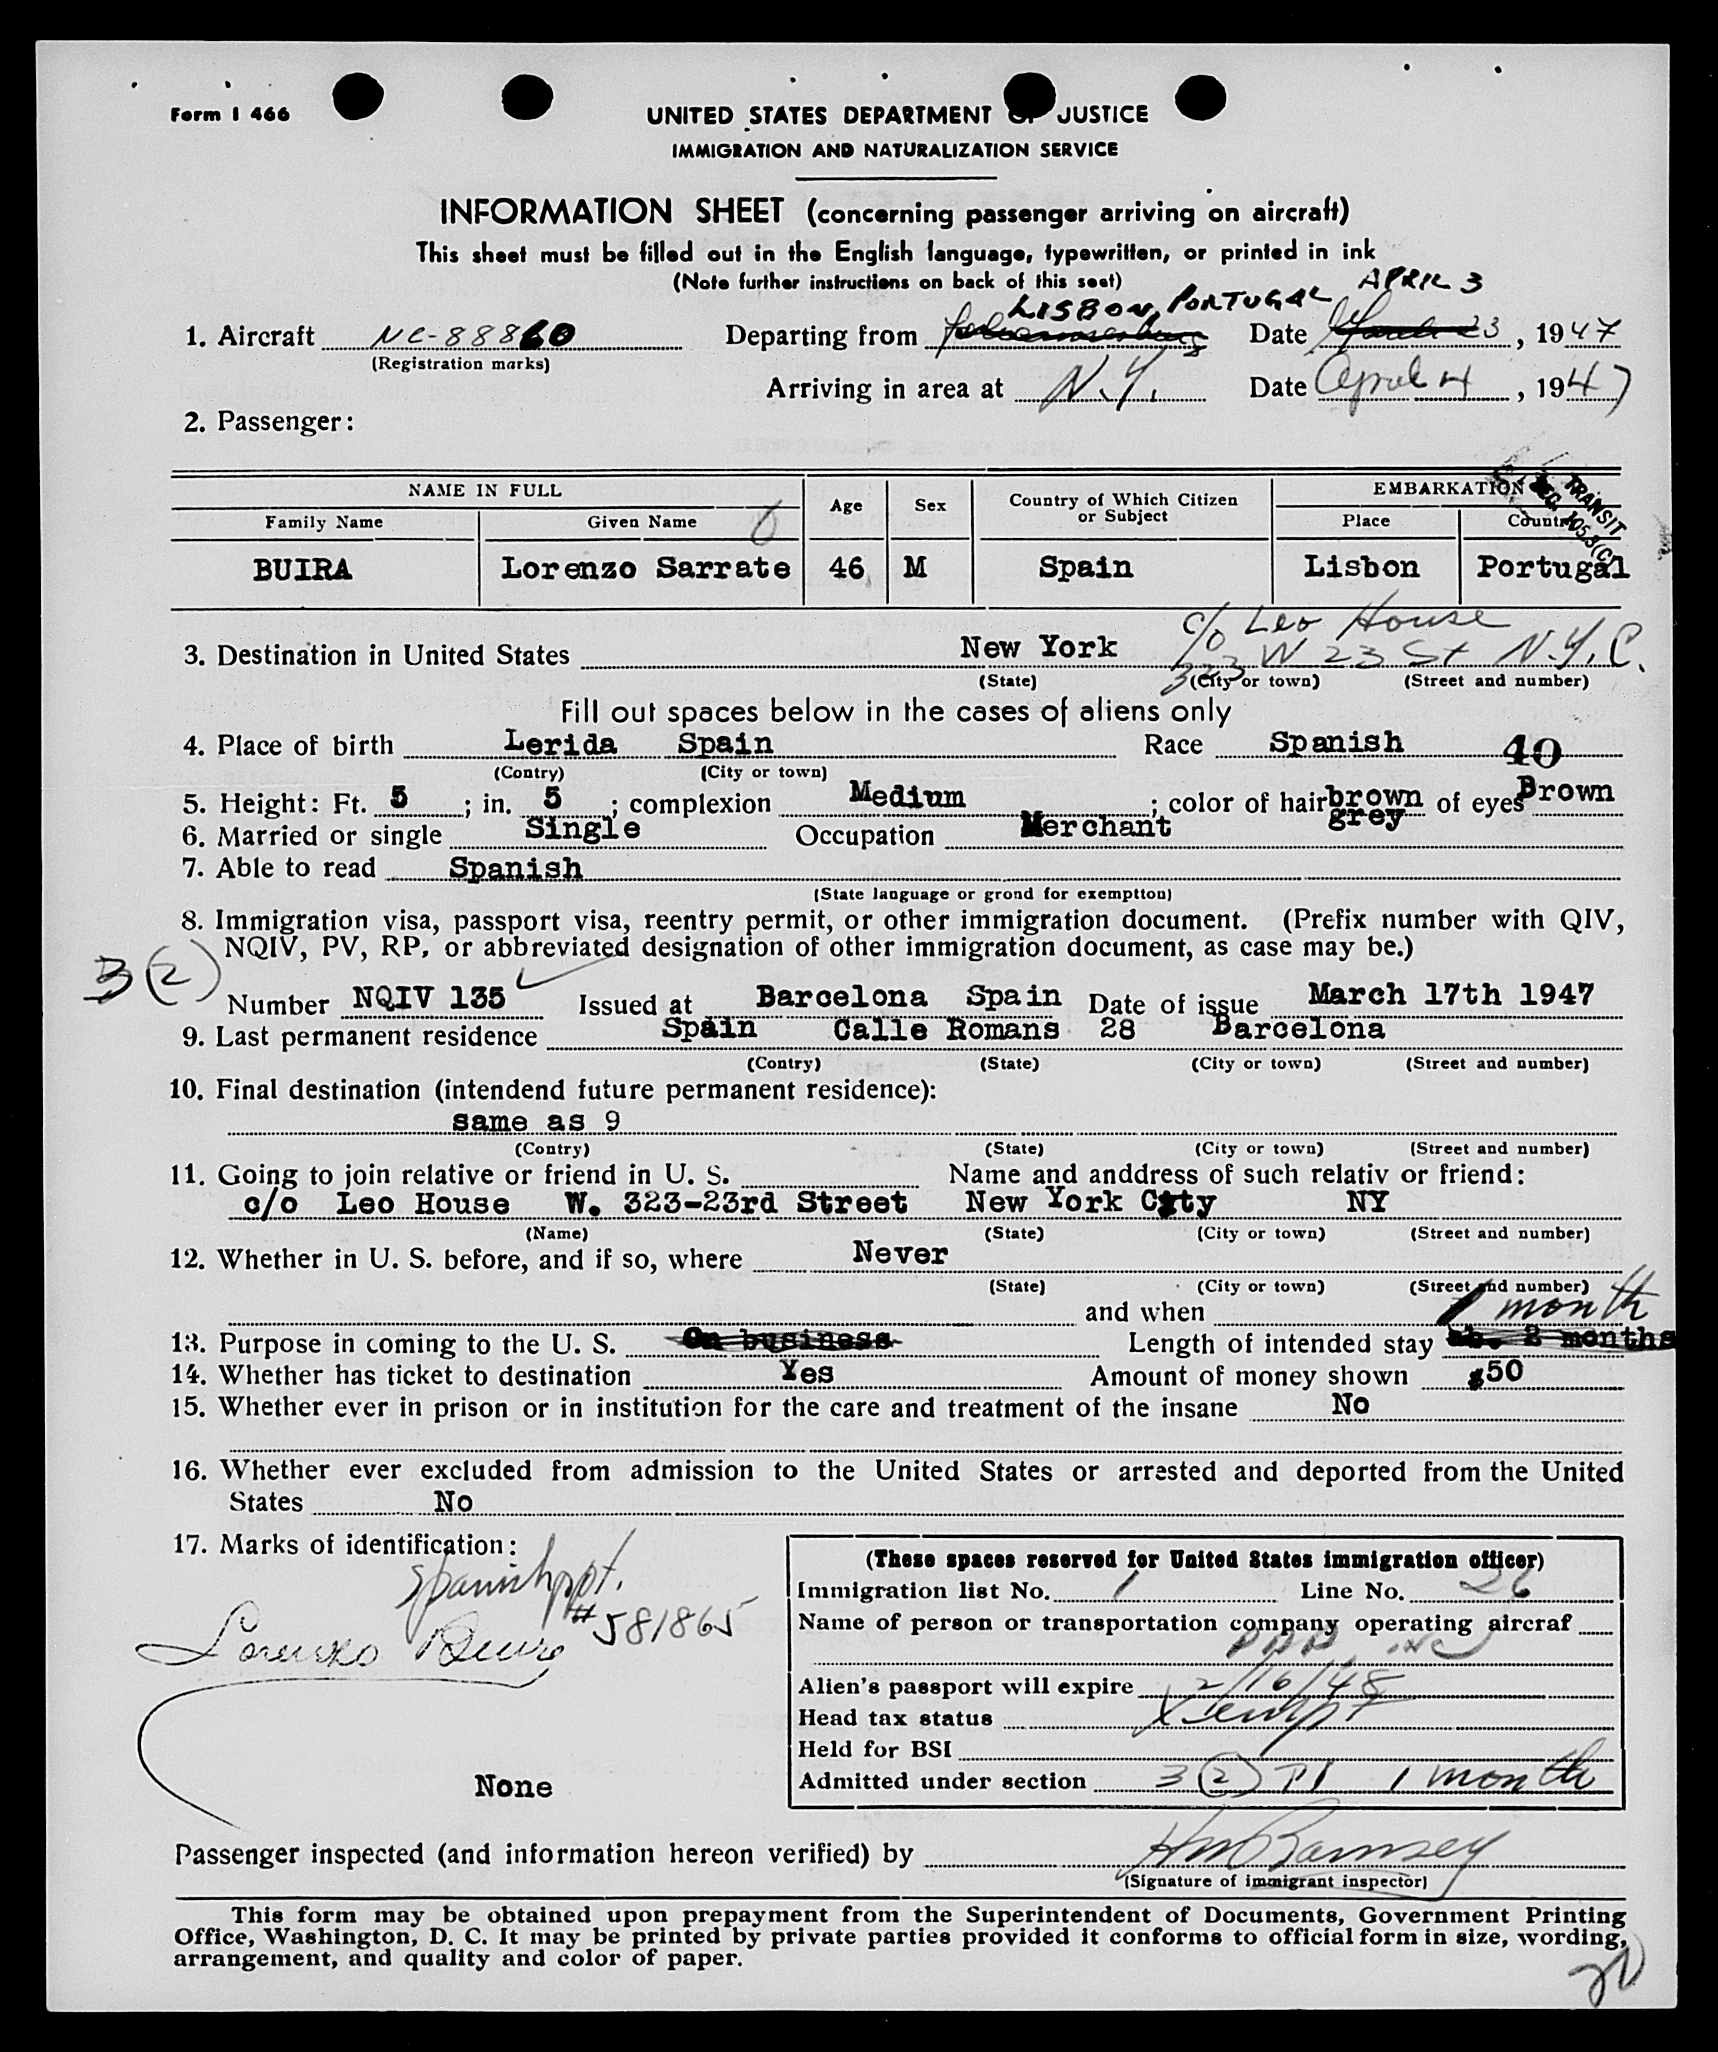 Form I 466
UNITED STATES DEPARTMENT OF JUSTICE
IMMIGRATION AND NATURALIZATION SERVICE
INFORMATION SHEET (concerning passenger arriving on aircraft)
This sheet must be filled out in the English language, typewritten, or printed in ink
(Note further instructions on back of this seet)
LISBON, PORTUGAL APRIL 3
1. Aircraft NC-88860 Departing from Date March 23, 1947
(Registration marks)
Arriving in area at N.Y. Date April 4, 1947
2. Passenger:
NAME IN FULL Age Sex Country of Which Citizen or Subject EMBARKATION
Family Name Given Name Place Country
TRANSIT
BUIRA Lorenzo Sarrate 46 M Spain Lisbon Portugal
c/o Leo House
3. Destination in United States New York 323 W 23 St N.Y.C.
(State) (City or town) (Street and number)
Fill out spaces below in the cases of aliens only
4. Place of birth Lerida Spain Race Spanish 40
(Contry) (City or town)
5. Height: Ft. 5; in. 5; complexion Medium; color of hair brown grey of eyes Brown
6. Married or single Single Occupation Merchant
7. Able to read Spanish
(State language or grond for exemptton)
8. Immigration visa, passport visa, reentry permit, or other immigration document. (Prefix number with QIV,
NQIV, PV, RP, or abbreviated designation of other immigration document, as case may be.)
3(2)
Number NQIV 135 Issued at Barcelona Spain Date of issue March 17th 1947
9. Last permanent residence Spain Calle Romans 28 Barcelona
(Contry) (State) (City or town) (Street and number)
10. Final destination (intendend future permanent residence):
same as 9
(Contry) (State) (City or town) (Street and number)
11. Going to join relative or friend in U. S. Name and anddress of such relativ or friend:
c/o Leo House W. 323-23rd Street New York City NY
(Name) (State) (City or town) (Street and number)
12. Whether in U. S. before, and if so, where Never
(State) (City or town) (Street and number)
and when 1 month
13. Purpose in coming to the U. S. On business Length of intended stay ab. 2 months
14. Whether has ticket to destination Yes Amount of money shown $50
15. Whether ever in prison or in institution for the care and treatment of the insane No
16. Whether ever excluded from admission to the United States or arrested and deported from the United
States No
17. Marks of identification:
Spanish ppt.
#581865
Lorenzo Buira
None
(These spaces reserved for United States immigration officer)
Immigration list No. 1 Line No. 26
Name of person or transportation company operating aircraf
PAA INC
Alien's passport will expire 2/16/48
Head tax status Xempt
Held for BSI
Admitted under section 3(2) P1 1 month
Passenger inspected (and information hereon verified) by HM Ramsey
(Signature of immigrant inspector)
This form may be obtained upon prepayment from the Superintendent of Documents, Government Printing
Office, Washington, D. C. It may be printed by private parties provided it conforms to official form in size, wording,
arrangement, and quality and color of paper.